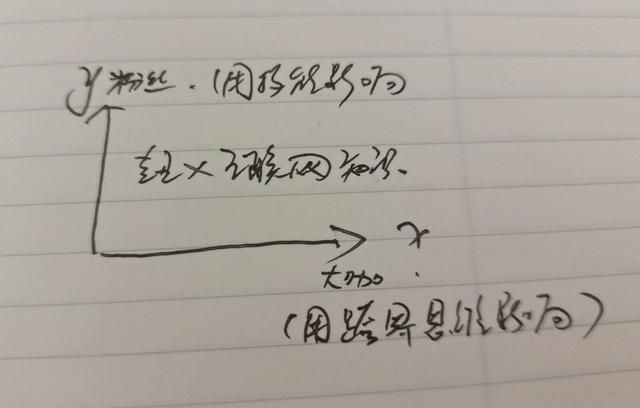 y 粉丝.(用的领影响)
× 互联网知识.
x
大咖.
(用跨界思维影响)